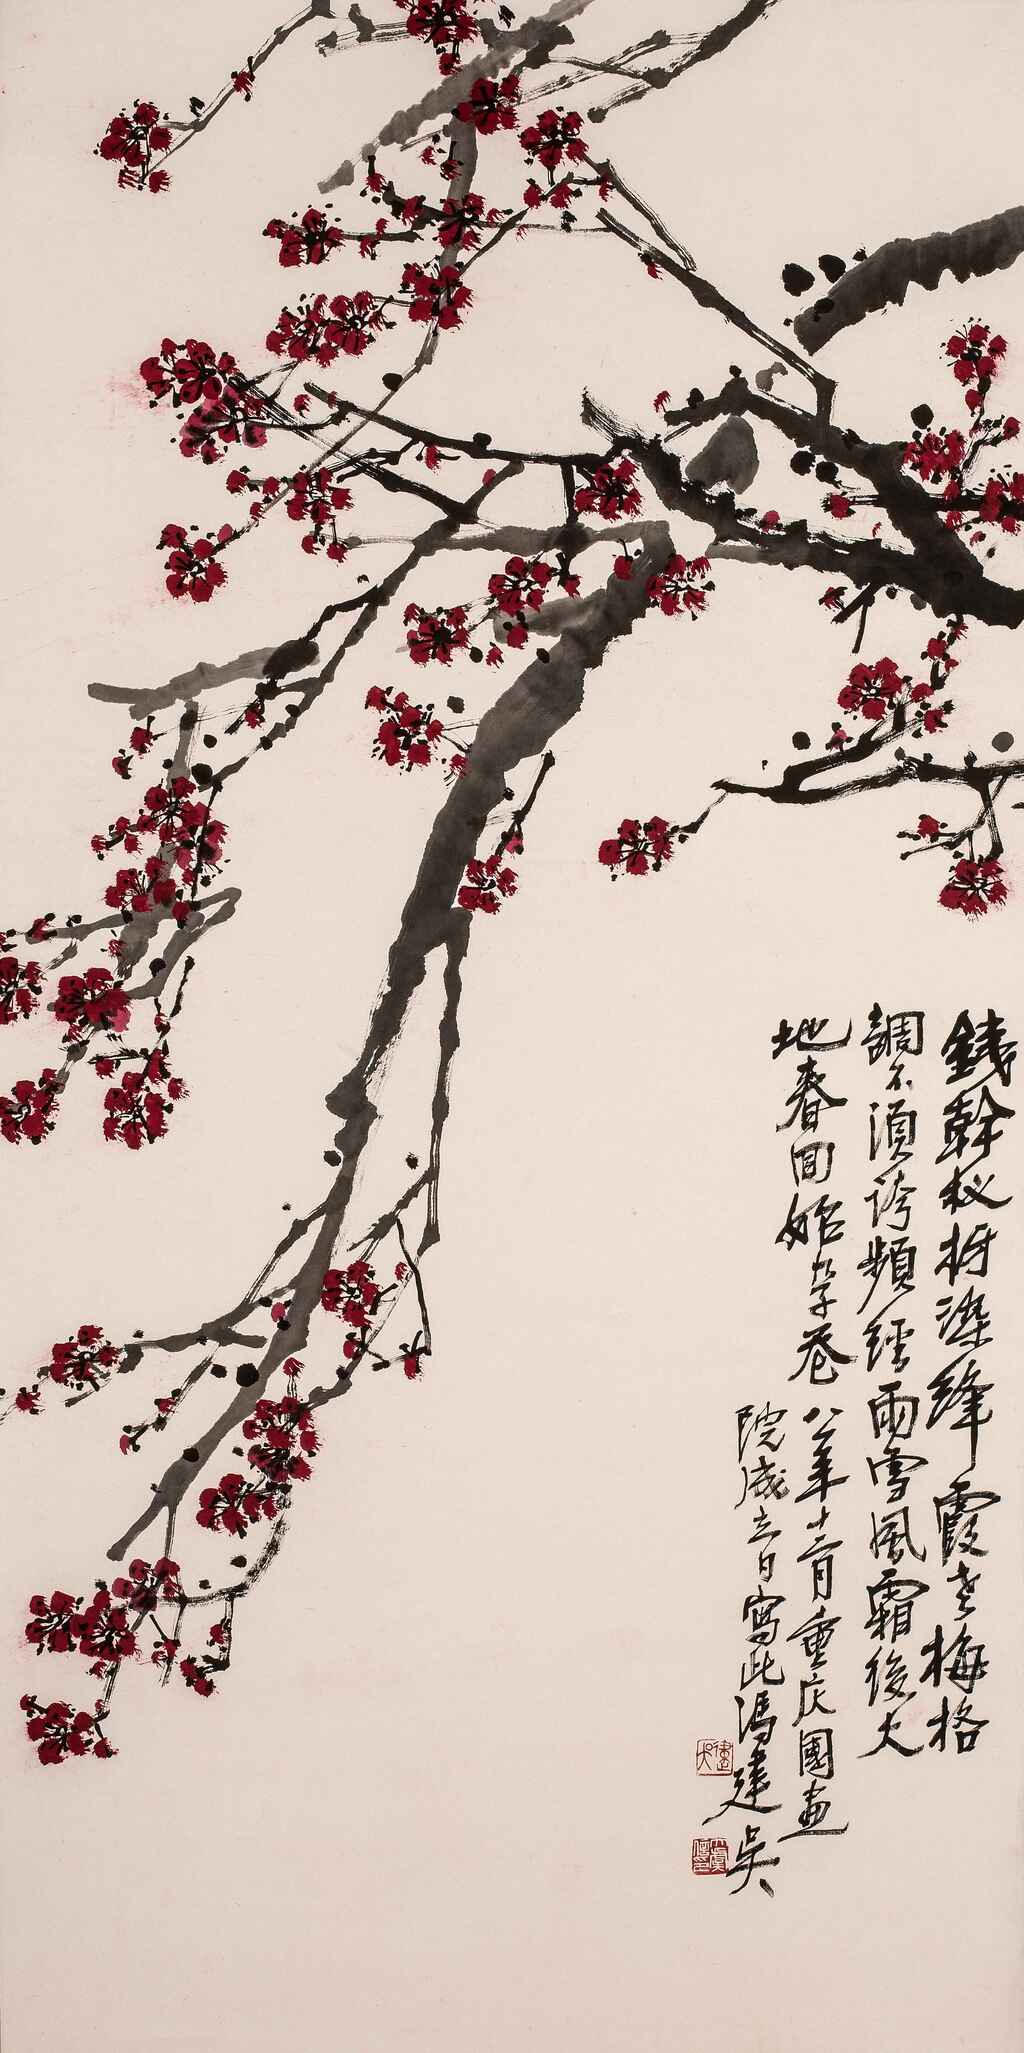 銕幹杈枒染絳霞老梅格
調不須誇頻經雨雪風霜後大
地春回始孕花 八二年十二月重庆國畫
院成立日寫此馮建吳